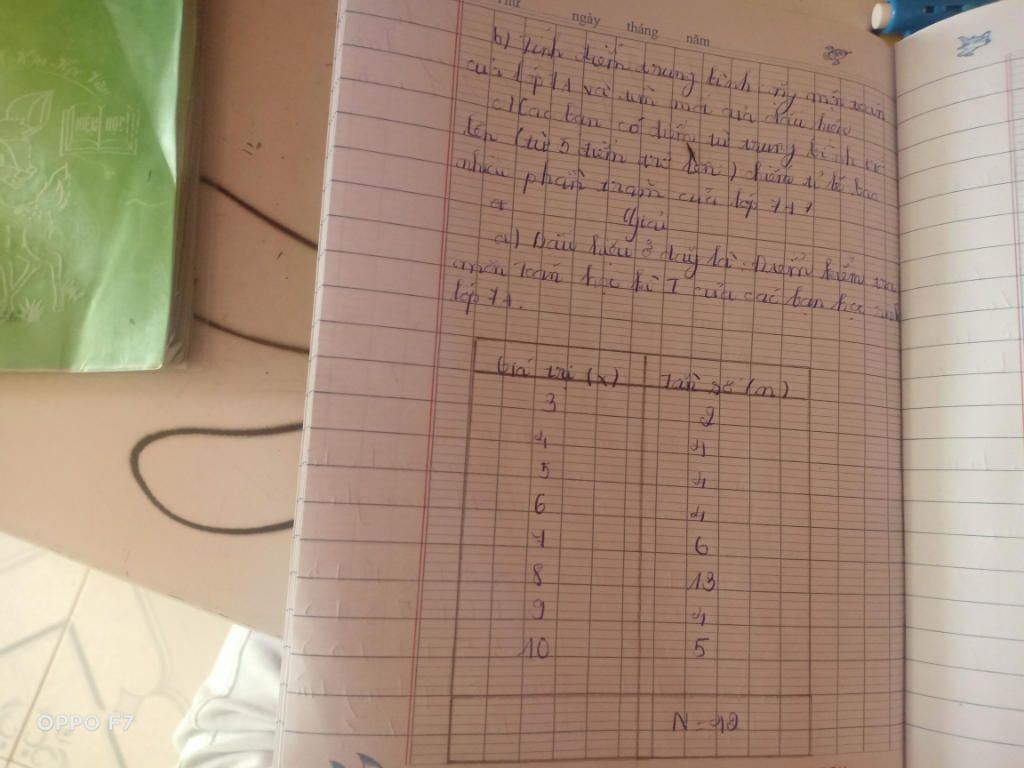 Thứ ngày tháng năm
b) Tính điểm trung bình
của lớp 7A và tìm mốt của dấu hiệu
c) Các bạn có điểm từ trung bình trở
lên (từ 5 điểm trở lên) chiếm tỉ lệ bao
nhiêu phần trăm của lớp 7A?
Giải
a) Dấu hiệu ở đây là: Điểm kiểm tra
môn toán học kì I của các bạn học sinh
lớp 7A.
Giá trị (x) Tần số (n)
3 2
4 4
5 4
6 4
7 6
8 13
9 4
10 5
N = 42
OPPO F7